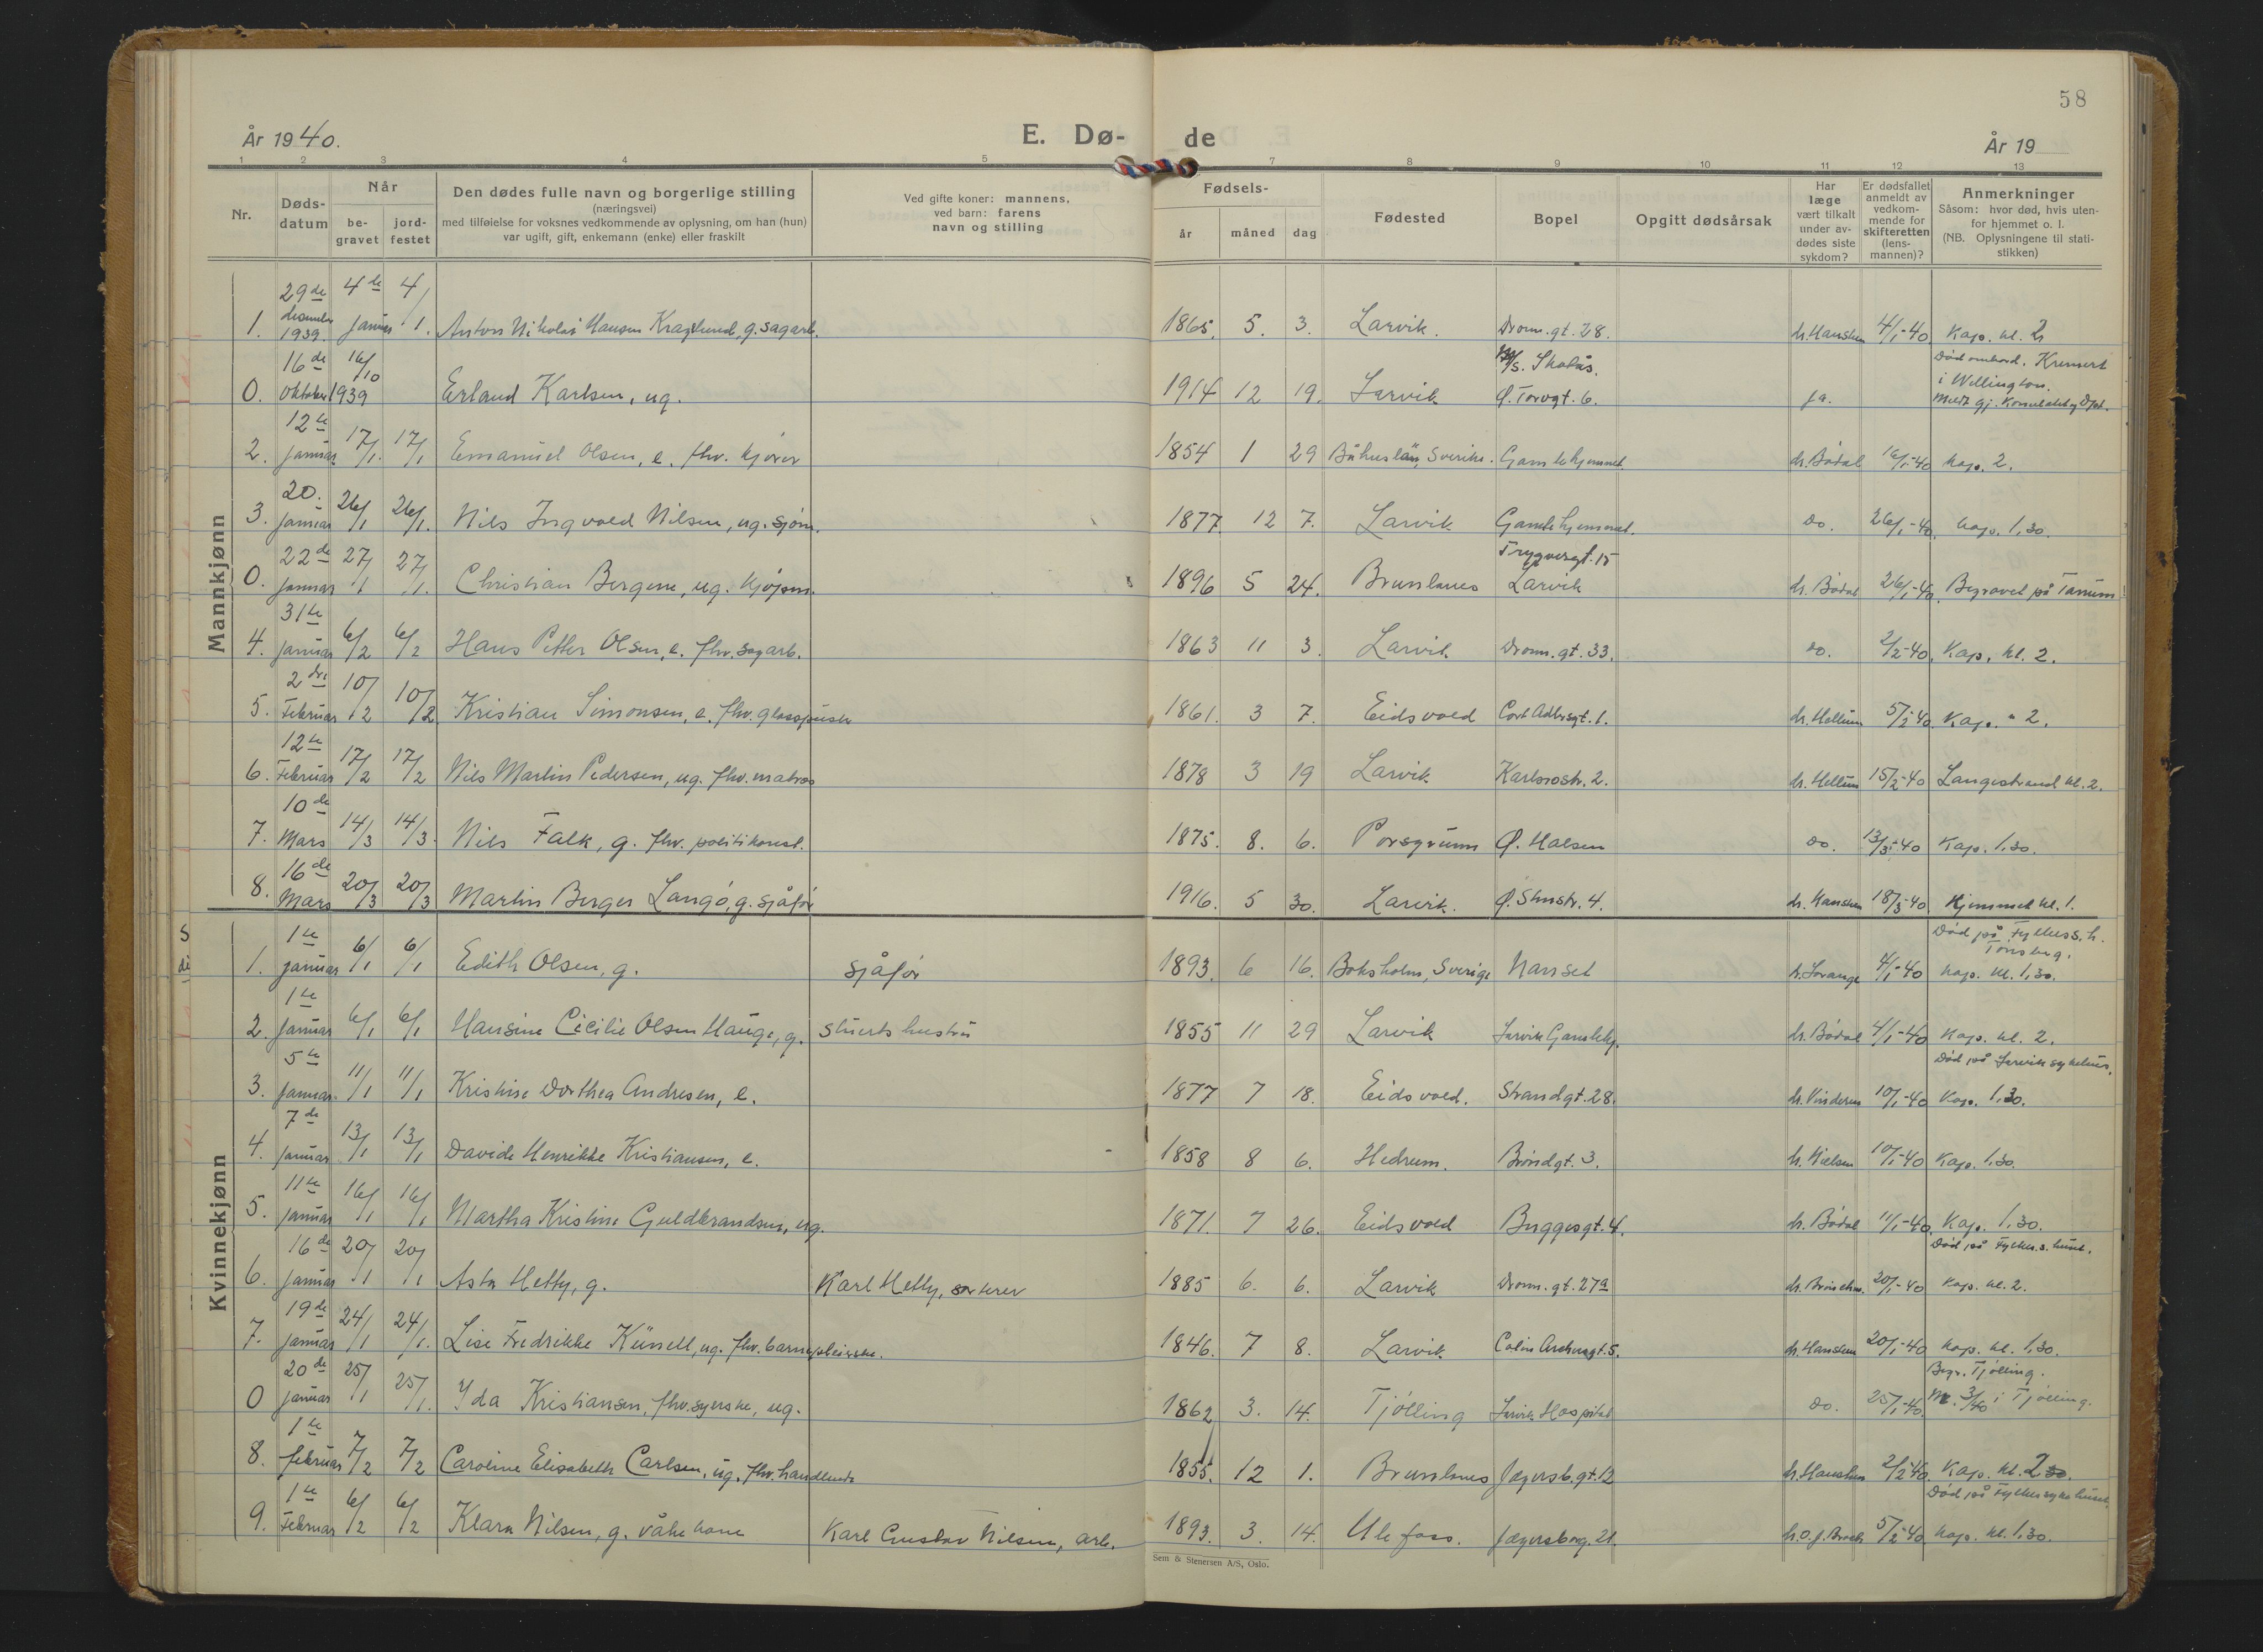 58
År 1940.
E. Dø-
de
År 19
1 2 3 4 5 7 8 9 10 11 12 13
Nr.
Døds-
datum
Når
be-
gravet
jord-
festet
Den dødes fulle navn og borgerlige stilling
(næringsvei)
med tilføielse for voksnes vedkommende av oplysning, om han (hun)
var ugift, gift, enkemann (enke) eller fraskilt
Ved gifte koner: mannens,
ved barn: farens
navn og stilling
Fødsels-
år måned dag
Fødested
Bopel
Opgitt dødsårsak
Har
læge
vært tilkalt
under av-
dødes siste
sykdom?
Er dødsfallet
anmeldt av
vedkom-
mende for
skifteretten
(lens-
mannen)?
Anmerkninger
Såsom: hvor død, hvis uten-
for hjemmet o. l.
(NB. Oplysningene til stati-
stikken)
Mannkjønn
1. 29de desember 1939. 4de januar 4/1. Anton Nikolai Hansen Kraglund, g. sagarb. 1865. 5. 3. Larvik. Dronn. gt. 28. dr. Hansken 4/1-40 Kap. kl. 2
0. 16de Oktober 1939 16/10 Erland Karlsen, ug. 1914 12 19. Larvik M/s. Skobus. Ø. Torvgt. 6. ja. Død ombord. Kremert
i Wellington.
2. 12te januar 17/1. 17/1 Emanuel Olsen, e. fhv. kjører 1854 1 29 Båhuslän, Sverike. Gamlehjemmet dr. Bødal 16/1-40 Kap. 2.
3. 20. januar 26/1 26/1. Nils Ingvald Nilsen, ug. sjøm. 1877 12 7. Larvik Gamlehjemmet. do. 26/1-40. Kap. 1,30.
0. 22de januar 27/1 27/1. Christian Bergene, ug. kjøpm. 1896 5 24. Brunlanes Trygvesgt. 15 Larvik dr. Bødal 26/1-40. Begravet på Tanum
4. 31te januar 6/2 6/2 Hans Petter Olsen, e. fhv. sagarb. 1863 11 3. Larvik Dronn. gt. 33. do. 2/2-40. Kap. kl. 2.
5. 2dre Februar 10/2 10/2 Kristian Simonsen, e. fhv. glasspuster 1861. 3 7. Eidsvold Cort Adlersgt. 1. dr. Hellum 5/2-40. Kap. " 2.
6. 12te Februar 17/2 17/2 Nils Martin Pedersen, ug. fhv. matros 1878 3 19 Larvik Karlsrostr. 2. dr. Hellum 15/2-40 Langestrand kl. 2.
7. 10de Mars 14/3 14/3. Nils Falk, g. fhv. politikonst. 1875. 8. 6. Porsgrunn Ø. Halsen do. 13/3-40 Kap. 1.30.
8. 16de Mars 20/3 20/3 Martin Berger Langø, g. sjåfør 1916. 5 30. Larvik. Ø. Stenstr. 4. dr. Hansken 18/3-40 Hjemmet kl. 1.
Kvinnekjønn
1. 1te januar 6/1 6/1 Edith Olsen, g. sjåfør 1893. 6 16. Boksholm, Sverige Nanset 4/1-40 Død på Fylkess. h.
Tønsberg.
Kap. kl. 1,30.
2. 1te Januar 6/1 6/1 Hansine Cicilie Olsen Hauge, g. stuerts hustru 1855 11 29 Larvik Larvik Gamlehj. dr. Bødal 4/1-40 Kap. kl. 2.
3. 5te januar 11/1 11/1 Kristine Dorthea Andresen, e. 1877 7 18. Eidsvold. Strandgt. 28. dr. Vinderen 10/1-40 Død på Larvik sykehus.
Kap. 1.30.
4. 7de januar 13/1 13/1 Davide Henrikke Kristiansen, e. 1858 8 6. Hedrum. Brøndgt. 3. dr. Nielsen 10/1-40 Kap. 1.30.
5. 11te januar 16/1 16/1 Martha Kristine Guldbrandsen, ug. 1871. 7 26. Eidsvold Buggesgt. 4. dr. Bødal 11/1-40. Kap. 1.30.
6. 16de januar 20/1 20/1 Asta Hetty, g. Karl Hetty, sorterer 1885 6. 6. Larvik Dronn. gt. 27a 20/1-40 Død på Fylkes.s.huset.
Kap. kl. 2.
7. 19de januar 24/1 24/1. Lise Fredrikke Künell, ug. fhv. barnepleierske. 1846. 7 8. Larvik Colin Archersgt. 5. dr. Hansken 20/1-40 Kap. kl. 1,30.
0 20de januar 25/1 25/1. Ida Kristiansen, fhv. syerske, ug. 1862 3. 14. Tjølling Larvik Hospital do. 25/1-40. Begr. Tjølling.
Nr. 3/40 i Tjølling.
8. 1te februar 7/2 7/2 Caroline Elisabeth Carlsen, ug. fhv. handlende 1855. 12 1. Brunlanes Jegersb. gt. 12 dr. Hansken 2/2-40. Kap. kl. 2
9. 1te Februar 6/2 6/2 Klara Nilsen, g. våkekone Karl Gustav Nilsen, arb. 1893. 3. 14. Ulefoss. Jegersborg. 21. 5/2-40. Død på Fylkessykehuset.
Kap. kl. 1.30.
Sem & Stenersen A/S, Oslo.